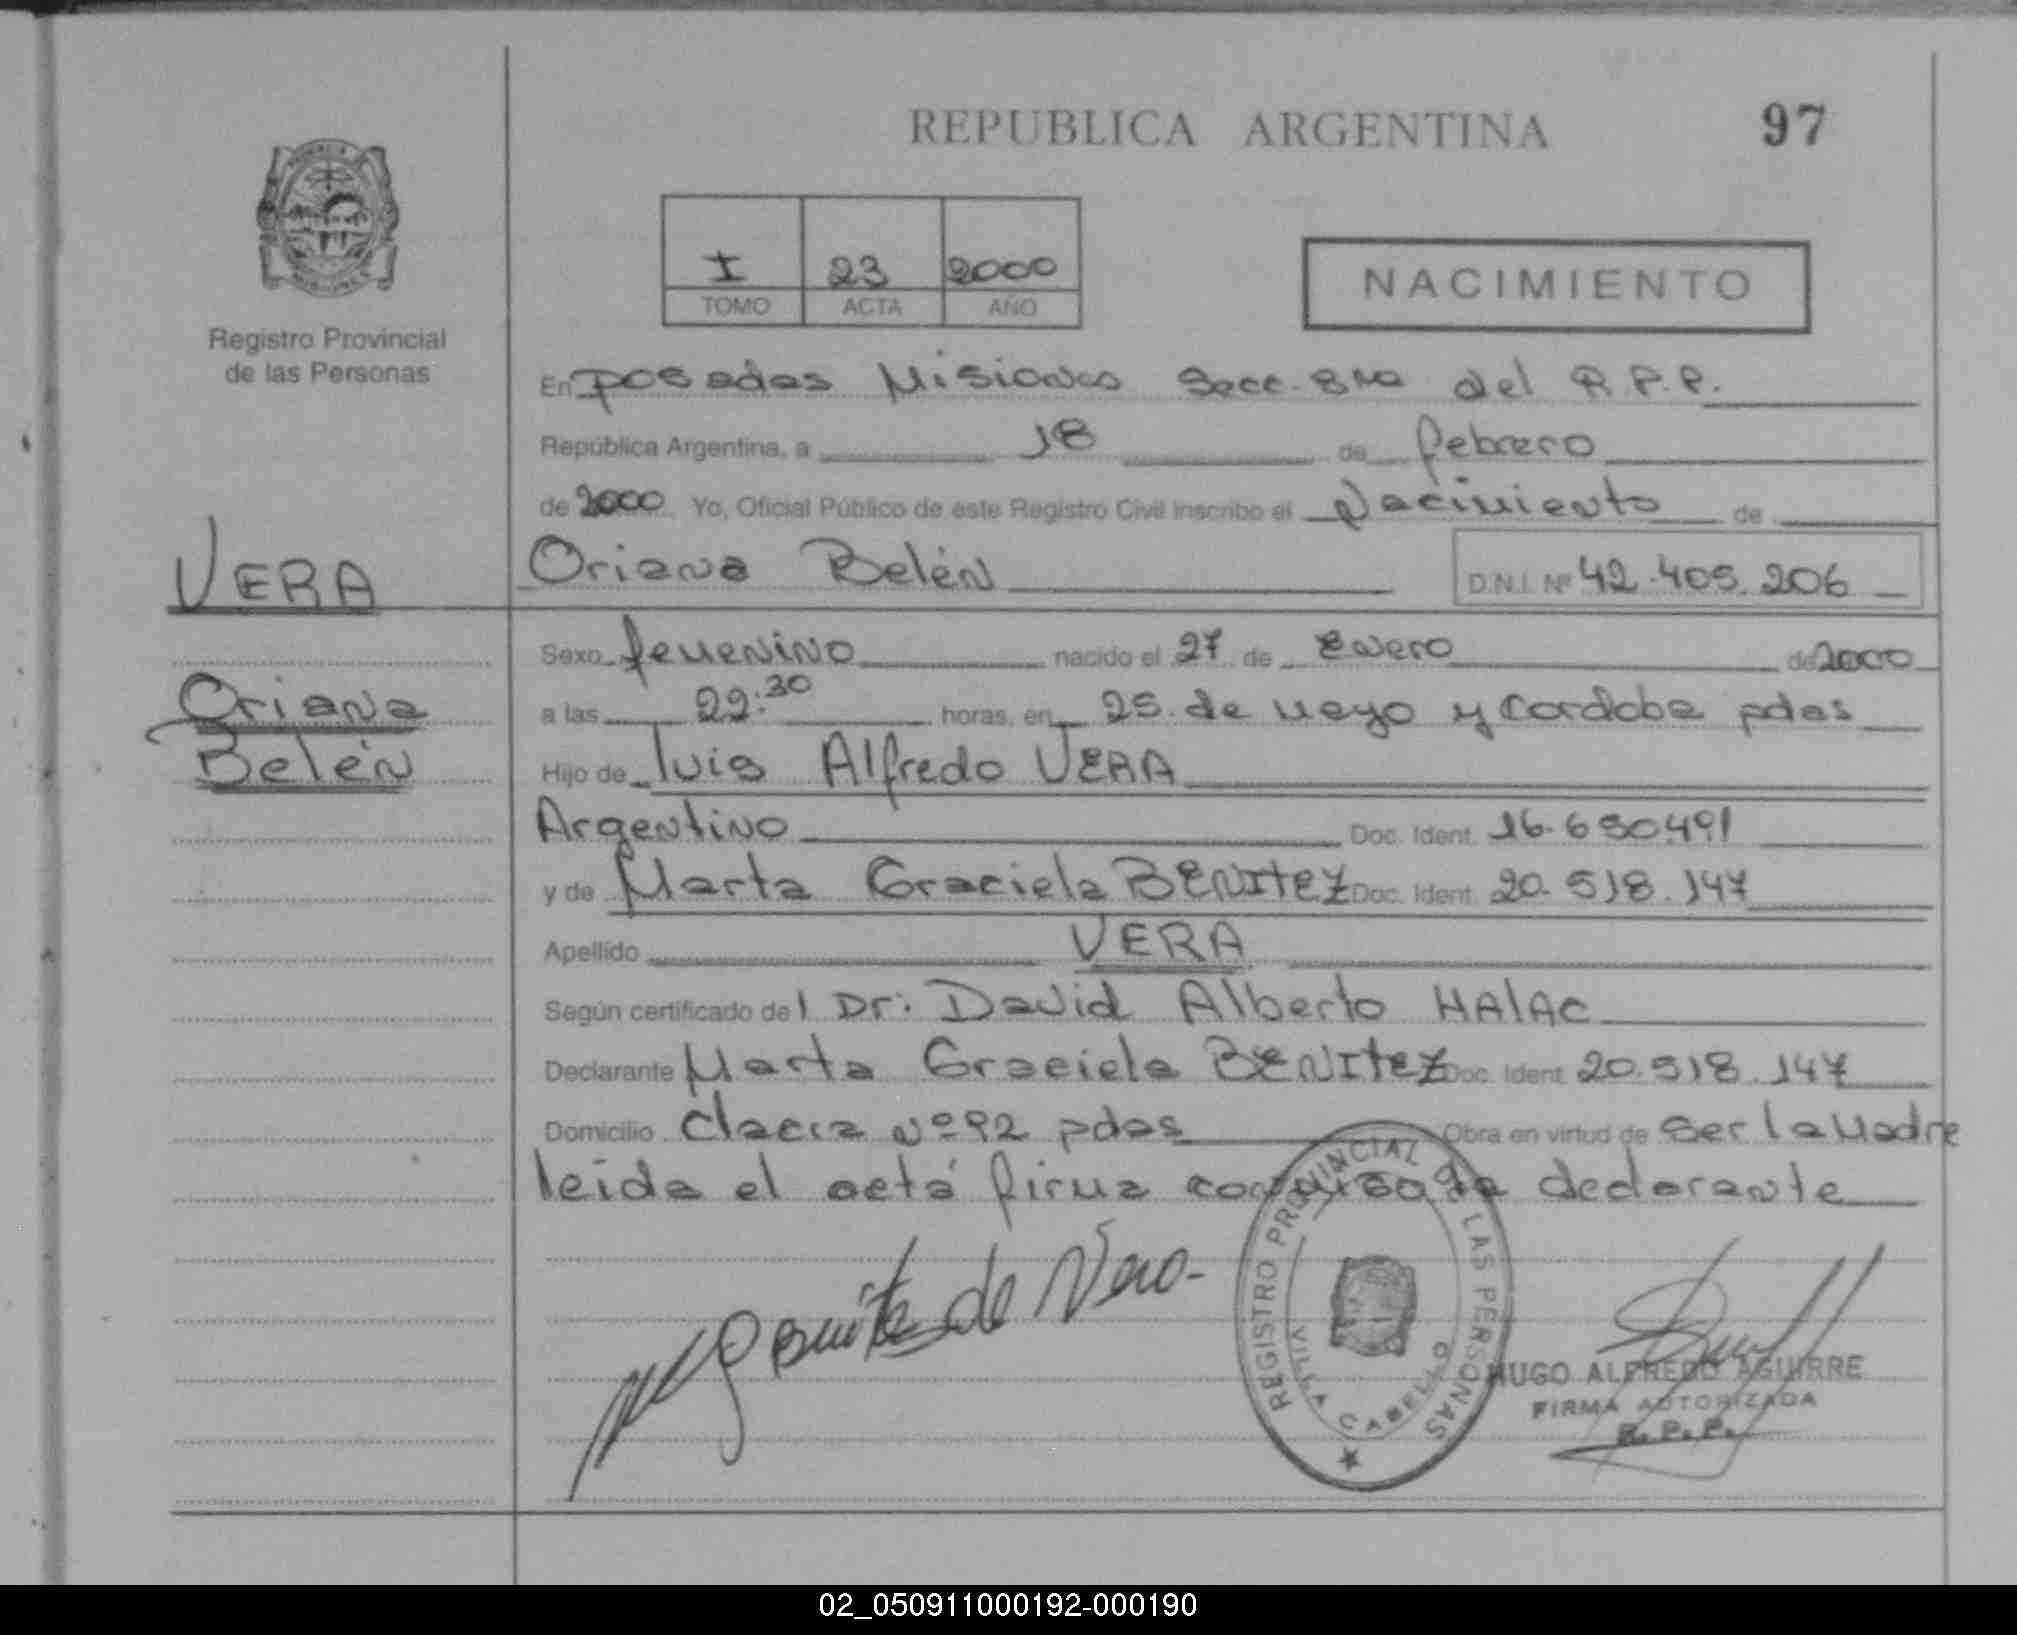 REPUBLICA ARGENTINA 97
I 23 2000
TOMO ACTA AÑO
NACIMIENTO
Registro Provincial
de las Personas
En Posadas Misiones Secc. 8va del R.P.P.
República Argentina, a 18 de febrero
de 2000 Yo, Oficial Público de este Registro Civil inscribo el Nacimiento de
VERA
Oriana Belén D.N.I. Nº 42.405.206
Sexo femenino nacido el 27 de Enero de 2000
Oriana
Belén
a las 22:30 horas, en 25 de mayo y Cordoba pdas
Hijo de luis Alfredo VERA
Argentino Doc. Ident. 16.650.491
y de Marta Graciela BENITEZ Doc. Ident. 20.518.147
Apellido VERA
Según certificado del Dr: David Alberto HAlAC
Declarante Marta Graciela BENITEZ Doc. Ident. 20.518.147
Domicilio Nº 92 pdas Obra en virtud de ser la Madre
leida el acta firma la declarante
Benitez de Vera
REGISTRO PROVINCIAL DE LAS PERSONAS
VILLA CABELLO
HUGO ALFREDO AGUIRRE
FIRMA AUTORIZADA
R.P.P.
02_050911000192-000190